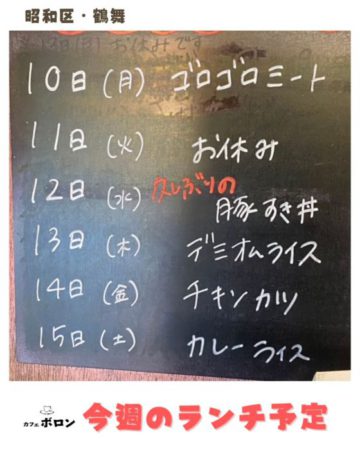 昭和区・鶴舞
お休みです
10日(月) ゴロゴロミート
11日(火) お休み
12日(水) 久しぶりの
豚すき丼
13日(木) デミオムライス
14日(金) チキンカツ
15日(土) カレーライス
カフェ ボロン 今週のランチ予定